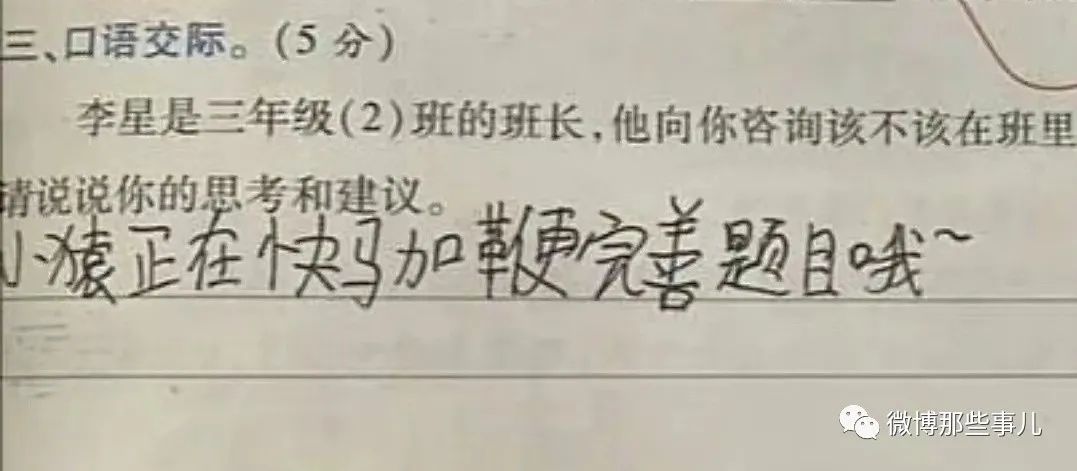 三、口语交际。(5 分)
李星是三年级(2)班的班长,他向你咨询该不该在班里
请说说你的思考和建议。
小猿正在快马加鞭完善题目哦~
微博那些事儿